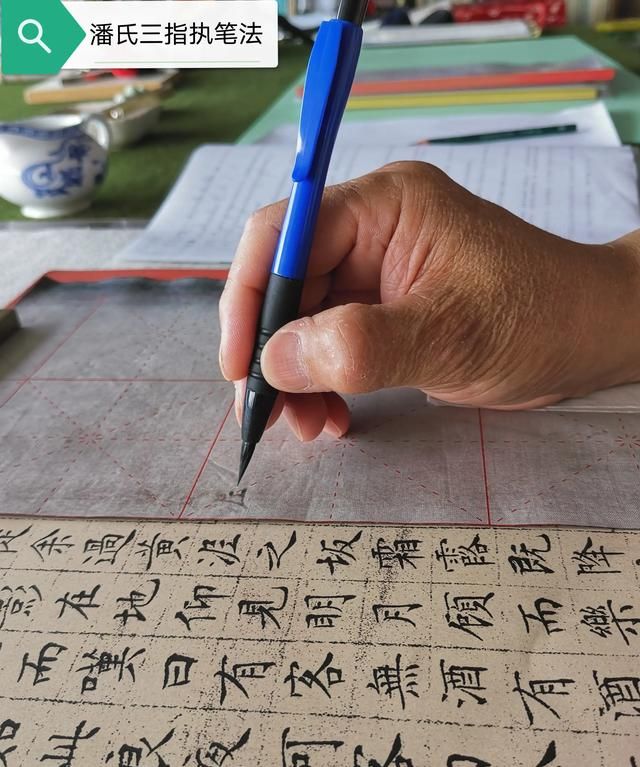 潘氏三指执笔法
余過黃泥之坂霜露既降
影在地仰見明月顧而樂
而嘆曰有客無酒有酒
此良夜何客